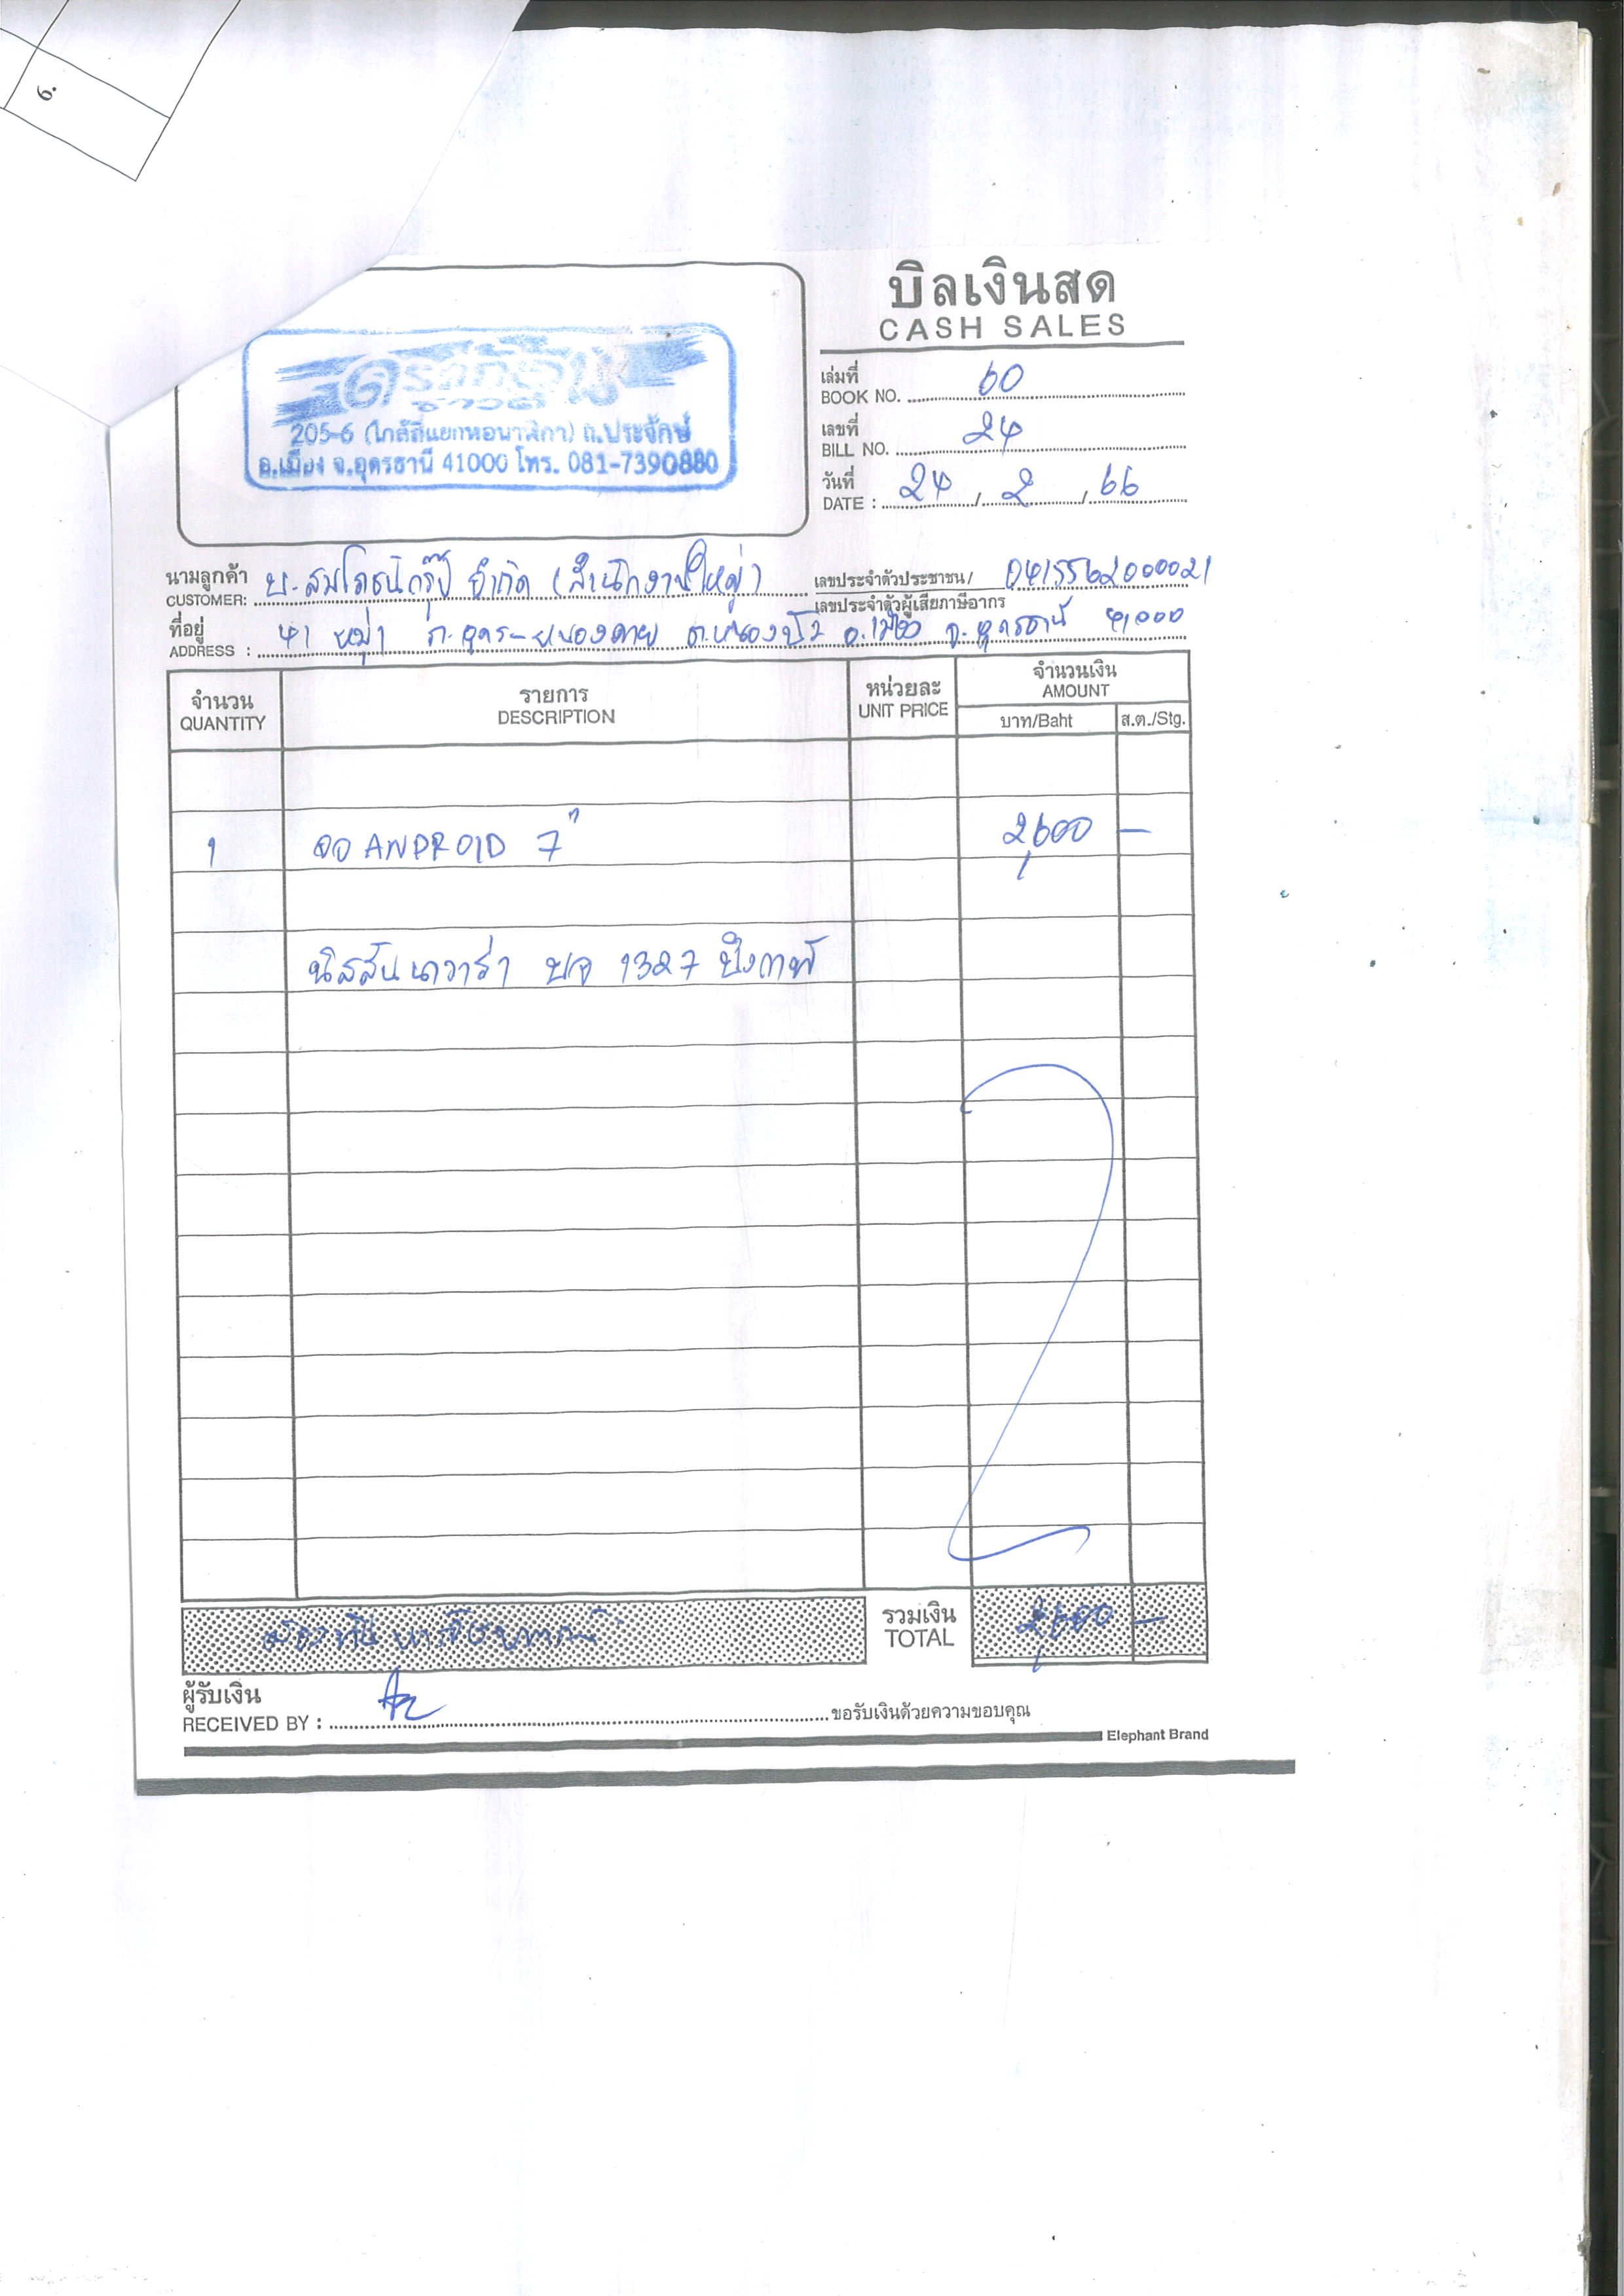 6.
บิลเงินสด
CASH SALES
ดราก้อน
ซาวด์
205-6 (ใกล้สี่แยกหอนาฬิกา) ถ.ประจักษ์
อ.เมือง จ.อุดรธานี 41000 โทร. 081-7390880
เล่มที่
BOOK NO. 60
เลขที่
BILL NO. 24
วันที่
DATE : 24 / 2 / 66
นามลูกค้า
CUSTOMER: บ. จำกัด (สำนักงานใหญ่)
เลขประจำตัวประชาชน / 0415562000021
เลขประจำตัวผู้เสียภาษีอากร
ที่อยู่
ADDRESS : 41 หมู่ 1 ถ.อุดร-หนองคาย ต.หนองบัว อ.เมือง จ.อุดรธานี 41000
จำนวน รายการ หน่วยละ จำนวนเงิน
QUANTITY DESCRIPTION UNIT PRICE AMOUNT
บาท/Baht ส.ต./Stg.
1 จอ ANDROID 7" 2,600 –
นิสสันนาวาร่า บจ 1327 บึงกาฬ
รวมเงิน
TOTAL 2,600 –
สองพันหกร้อยบาท
ผู้รับเงิน
RECEIVED BY : ขอรับเงินด้วยความขอบคุณ
Elephant Brand